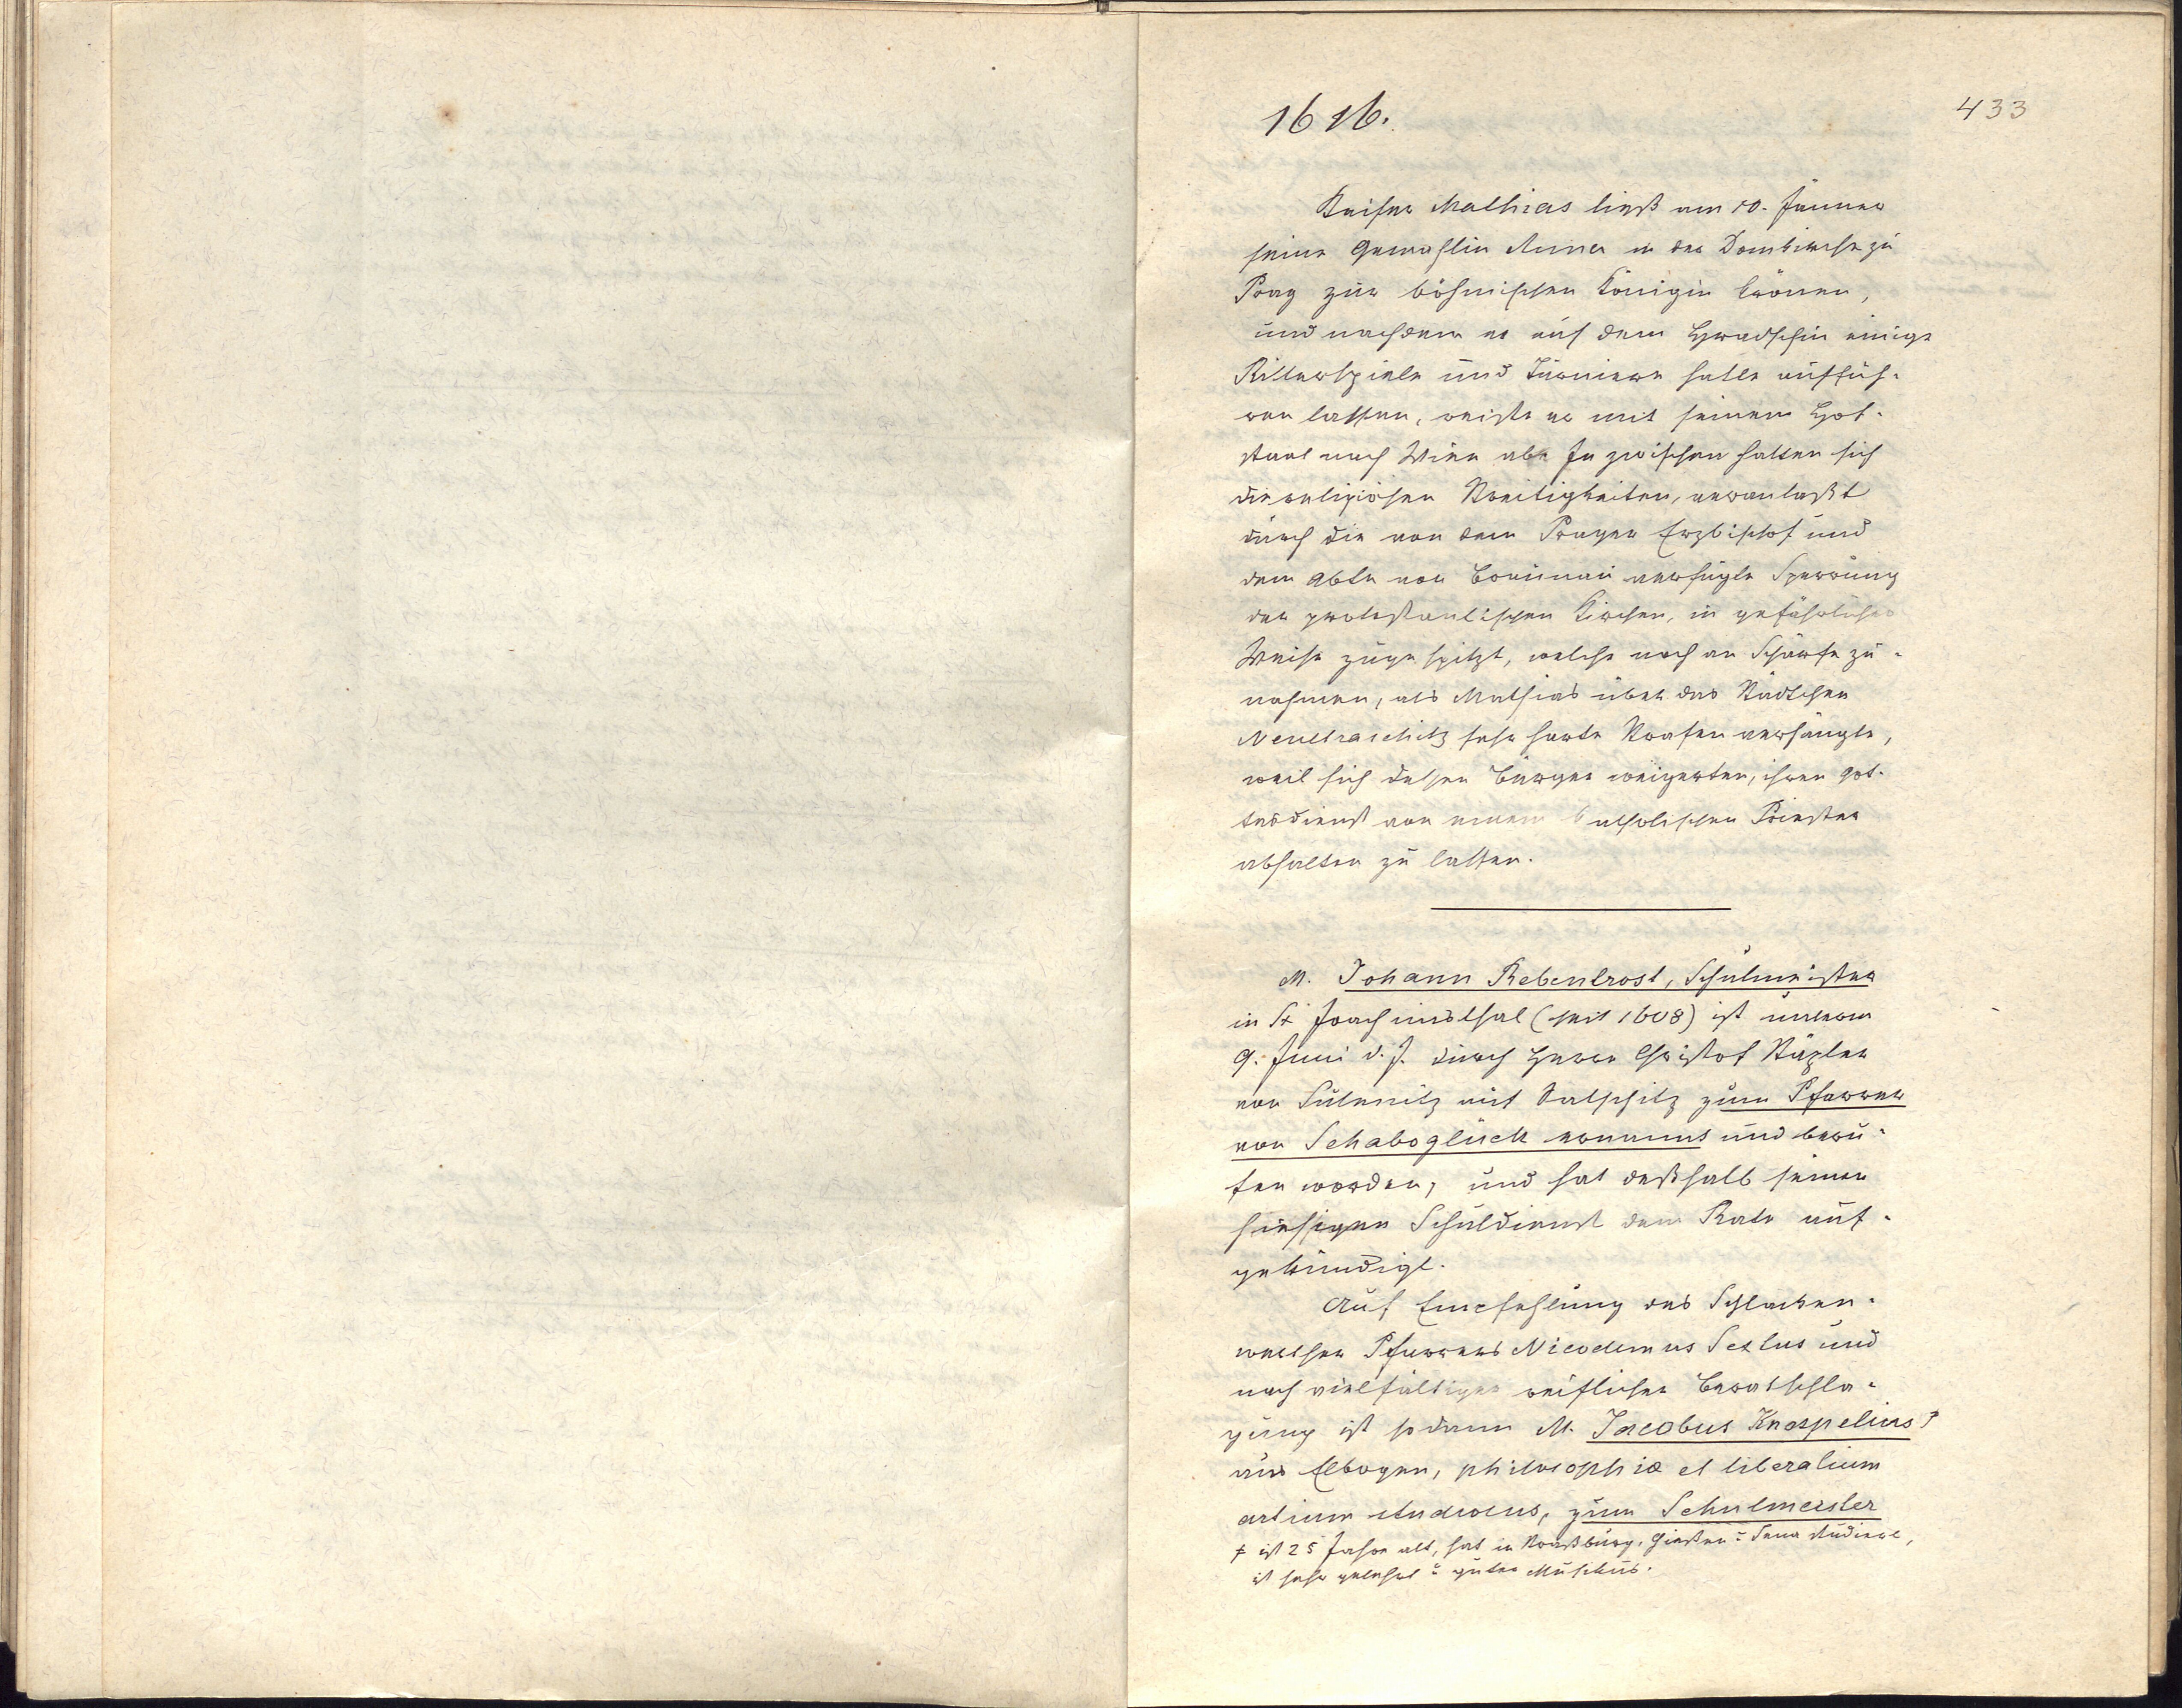 1616.
433
Kaiser Mathias ließ am 10. Jänner
seine Gemahlin Anna in der Domkirche zu
Prag zur böhmischen Königin krönen,
und nachdem er auf dem Hradschin einige
Ritterspiele und Turniere hatte auffüh-
ren lassen, reiste er mit seinem Hof-
staat nach Wien ab. Inzwischen hatten sich
die religiösen Streitigkeiten, veranlaßt
durch die von dem Prager Erzbischof und
dem Abte von Braunau verfügte Sperrung
der protestantischen Kirchen, in gefährlicher
Weise zugespitzt, welche noch an Schärfe zu-
nahmen, als Mathias über das Städtchen
Neustraschitz sehr harte Strafen verhängte,
weil sich dessen Bürger weigerten, ihren Got-
tesdienst von einem katholischen Priester
abhalten zu lassen.
M. Johann Rebentrost, Schulmeister
in St Joachimsthal (seit 1608) ist unterm
9. Juni d. J. durch Herrn Christof Stägler
von Sulewitz auf Satschitz zum Pfarrer
von Schaboglück ernannt und beru-
fen worden, und hat deßhalb seinen
hiesigen Schuldienst dem Rate auf-
gekündigt.
Auf Empfehlung des Schlacken-
werther Pfarrers Nicodemus Sextus und
nach vielfältiger reiflicher Beratschla-
gung ist sodann M. Jacobus Knospelius †
aus Elbogen, philosophiæ et liberalium
artium studiosus, zum Schulmeister
† ist 25 Jahre alt, hat in Straßburg, Gießen u Jena studiert,
ist sehr gelehrt u guter Musikus.